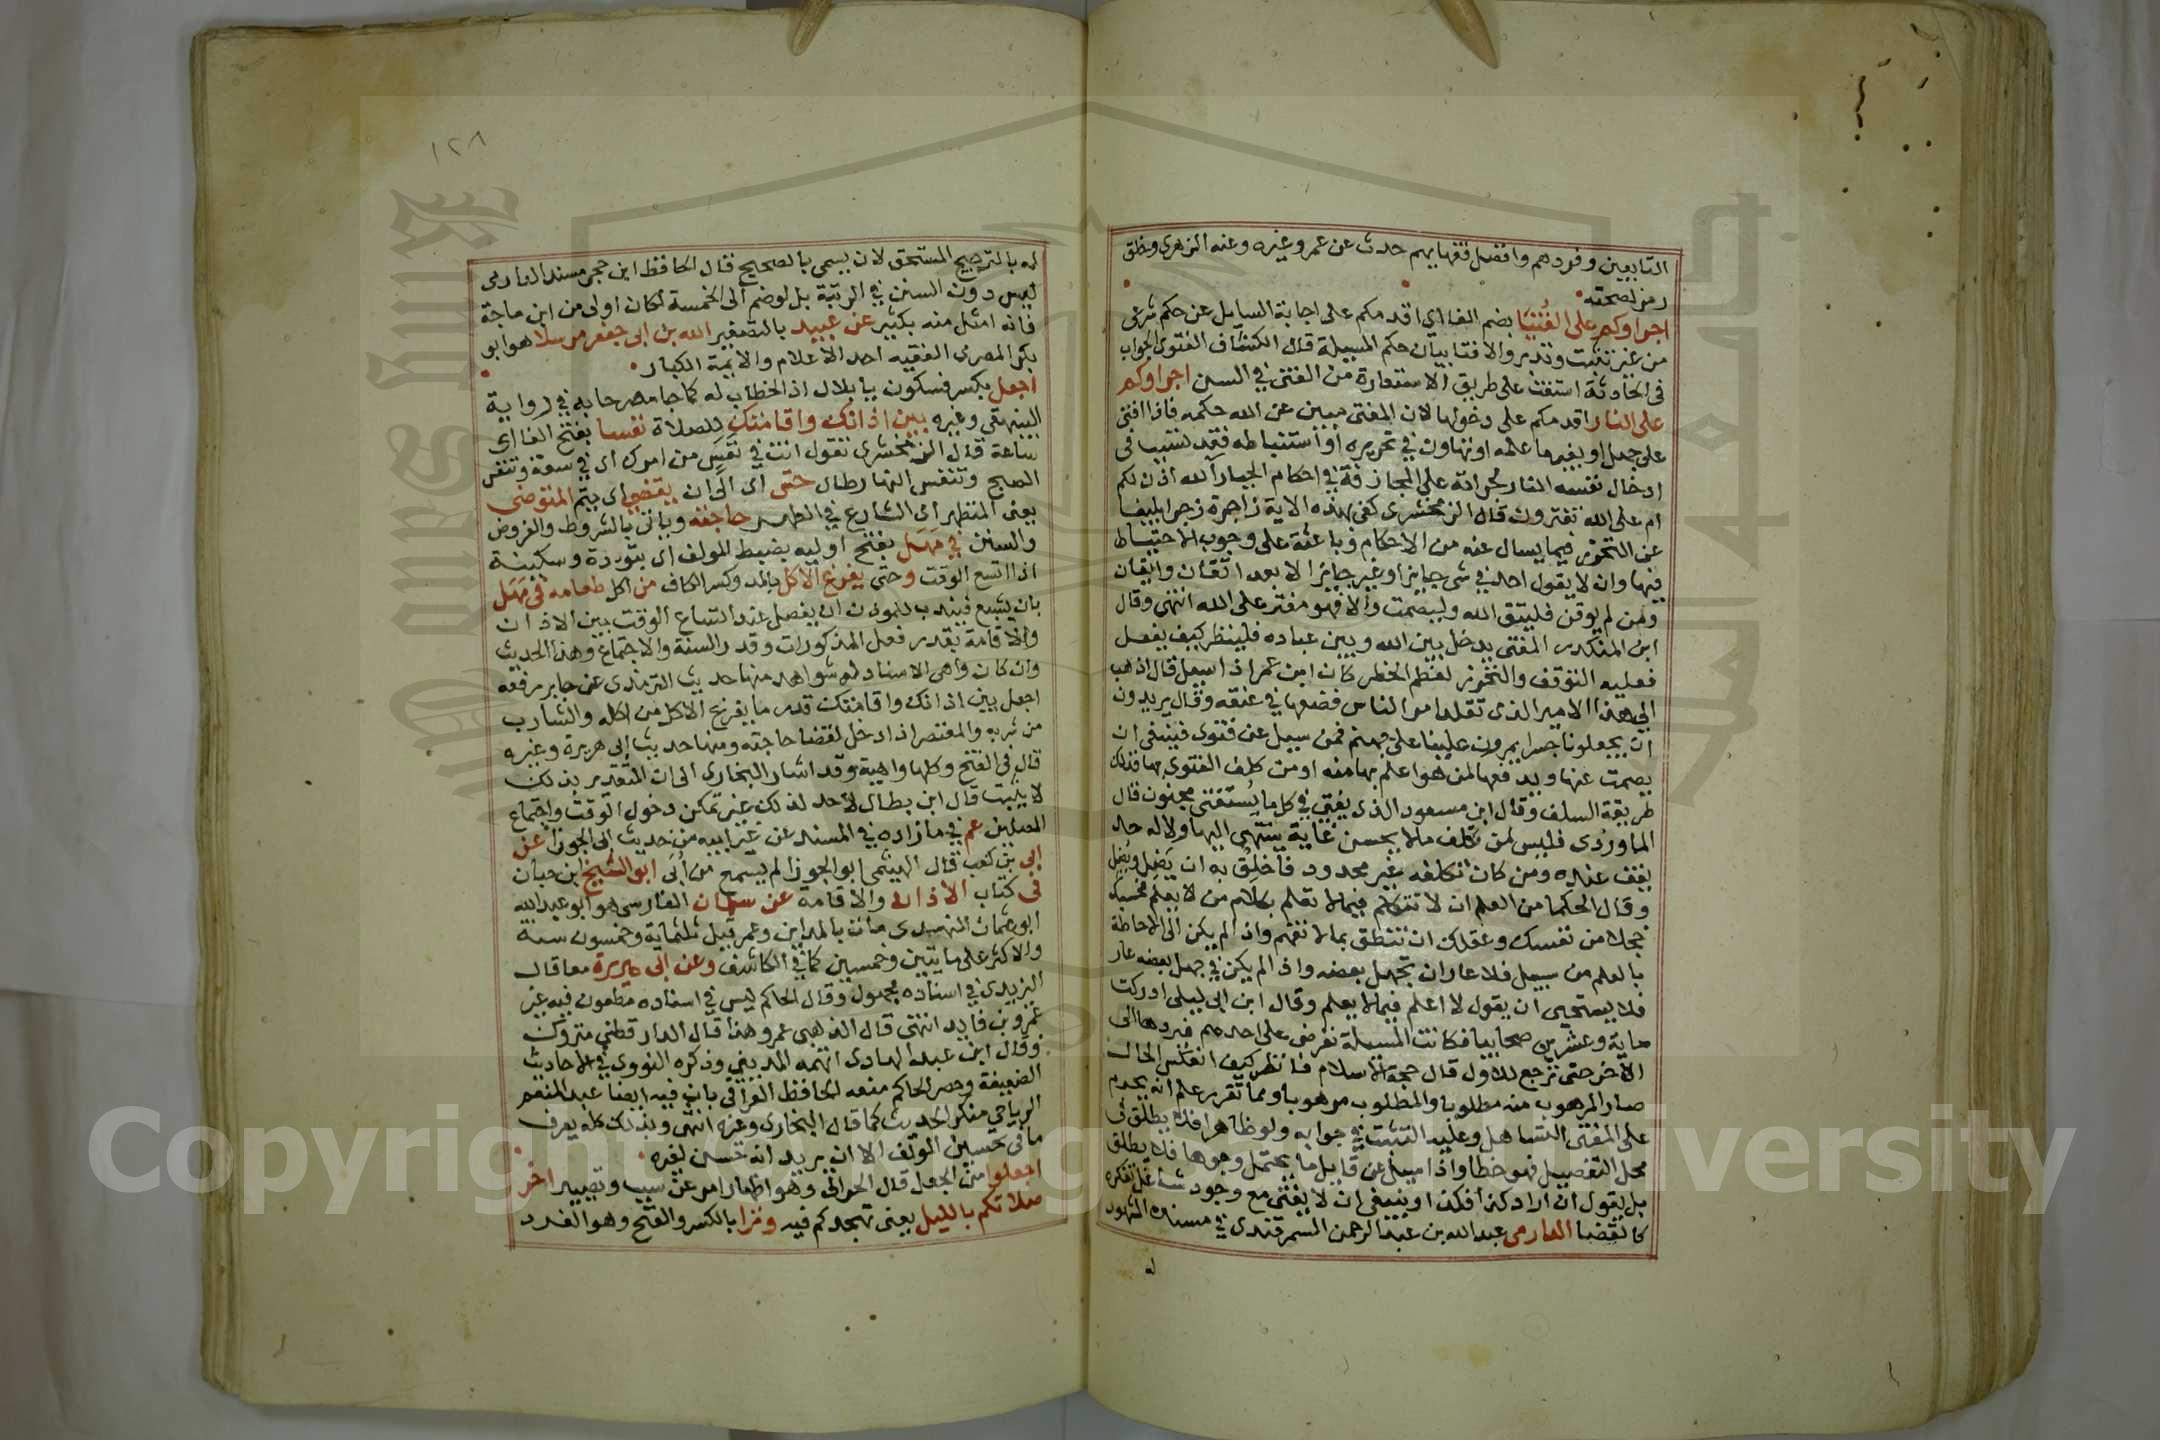 التابعين وفردهم وافضل فقهايهم حدث عن عمر وغيره وعنه الزهري وخلق
رمز لصحته
اجراوكم على الفُتْيَا بضم الفا اي اقدمكم على اجابة السايل عن حكم شرعى
من غير تثبت وتدبر والافتا بيان حكم المسيلة قال الكشاف الفتوى الجواب
فى الحادثة استفت على طريق الاستعارة من الفتى في السن اجراوكم
على النار اقدمكم على دخولها لان المفتى مبين عن الله حكمه فاذا افتى
على جهل او بغير ما علمه او تهاون في تحريره او استنباطه فقد تسبب فى
ادخال نفسه النار لجراءته على المجازفة في احكام الجبار آلله اذن لكم
ام على الله تفترون قال الزمخشرى كفى بهذه الاية زاجرة زجرا بليغا
عن التجوز فيما يسال عنه من الاحكام وباعثة على وجوب الاحتياط
فيها وان لا يقول احد في شى جايز او غير جايز الا بعد اتقان وايقان
ومن لم يوقن فليتق الله وليصمت والا فهو مفتر على الله انتهى وقال
ابن المنكدر المفتى يدخل بين الله وبين عباده فلينظر كيف يفعل
فعليه التوقف والتحرز لعظم الخطر كان ابن عمر اذا سيل قال اذهب
الى هذا الامير الذى تقلد امور الناس فضعها في عنقه وقال يريدون
ان يجعلونا جسرا يمرون علينا على جهنم فمن سيل عن فتوى فينبغى ان
يصمت عنها ويدفعها لمن هو اعلم بها منه او من كلف الفتوى بها فذلك
طريقة السلف وقال ابن مسعود الذى يفتى في كل ما يُستفتى مجنون قال
الماوردى فليس لمن تكلف مالا يحسن غاية ينتهى اليها ولا له حد
يقف عنده ومن كان تكلفه غير محدود فاخلق به ان يَضِل ويُضِل
وقال الحكما من العلم ان لا تتكلم فيما لا تعلم بكلام من لا يعلم فحسبك
خجلا من نفسك وعقلك ان تنطق بما لا تفهم واذا لم يكن الى الاحاطة
بالعلم من سبيل فلا عار ان تجهل بعضه واذا لم يكن في جهل بعضه عار
فلا يستحيى ان يقول لا اعلم فيما لا يعلم وقال ابن ابى ليلى ادركت
ماية وعشرين صحابيا فكانت المسيلة تعرض على احدهم فيردها الى
الاخر حتى ترجع للاول قال حجة الاسلام فانظر كيف انعكس الحال
صار المرهوب منه مطلوبا والمطلوب مرهوبا ومما تقرر علم انه يحرم
على المفتى التساهل وعليه التثبت في جوابه ولو ظاهرا فلا يطلق فى
محل التفصيل فهو خطا واذا سيل عن قايل ما يحتمل وجوها فلا يطلق
بل يقول ان اراد كذا فكذا وينبغى ان لا يفتى مع وجود شاغل لفكره
كالقضا الدارمى عبد الله بن عبد الرحمن السمرقندى في مسنده المشهود
له
١٢٨
له بالترجيح المستحق لان يسمى بالصحيح قال الحافظ ابن حجر مسند الدارمى
ليس دون السنن في الرتبة بل لو ضم الى الخمسة لكان اولى من ابن ماجة
فانه امثل منه بكثير عن عبيد بالتصغير الله بن ابى جعفر مرسلا هو ابو
بكر المصرى الفقيه احد الاعلام والايمة الكبار
اجعل بكسر فسكون يا بلال اذ الخطاب له كما جا مصرحا به في رواية
البيهقي وغيره بين اذانك واقامتك للصلاة نفسا بفتح الفا اي
ساعة قال الزمخشرى تقول انت في نفس من امرك اى في سعة وتنفس
الصبح وتنفس النهار طال حتى اى الى ان يقضى اى يتم المتوضى
يعنى المتطهر اى الشارع في الطهر حاجته وياتى بالشروط والفروض
والسنن في مَهَل بفتح اوليه بضبط المولف اى بتوردة وسكينة
اذا اتسع الوقت وحتى يفرغ الاكل بالمد وكسر الكاف من اكل طعامه فى مَهَل
بان يشبع فيندب للموذن ان يفصل عند اتساع الوقت بين الاذان
والاقامة بقدر فعل المذكورات وقدر السنة والاجتماع وهذا الحديث
وان كان واهى الاسناد له شواهد منها حديث الترمذى عن جابر رفعه
اجعل بين اذانك واقامتك قدر ما يفرغ الاكل من اكله والشارب
من شربه والمعتصر اذا دخل لقضا حاجته ومنها حديث ابى هريرة وغيره
قال في الفتح وكلها واهية وقد اشار البخارى الى ان التقدير بذلك
لا يثبت قال ابن بطال لا حد لذلك غير تمكن دخول الوقت واجتماع
المصلين عم في ما زاده في المسند عن غير ابيه من حديث ابى الجوزا عن
ابى بن كعب قال الهيثمى ابو الجوزا لم يسمع من اُبَى ابو الشيخ بن حبان
فى كتاب الاذان والاقامة عن سلمان الفارسى هو ابو عبد الله
ابو عثمان النهدى مات بالمداين وعمر قيل ثلثماية وخمسون سنة
والاكثر على مايتين وخمسين كما في الكاشف وعن ابى هريرة معا قال
الزيدى في اسناده مجهول وقال الحاكم ليس في اسناده مطعون فيه غير
عمرو بن فايد انتهى قال الذهبى عمرو هذا قال الدارقطنى متروك
وقال ابن عبد الهادى اتهمه المدينى وذكره النووى في الاحاديث
الضعيفة وحصر الحاكم منعه الحافظ العراقى بان فيه ايضا عبد المنعم
الرياحى منكر الحديث كما قال البخارى وغيره انتهى وبذلك كله يعرف
ما فى تحسين المولف الا ان يريد انه حسن لغيره
اجعلوا من الجعل قال الحرالى وهو اظهار امر عن سبب وتصيير اخر
صلاتكم بالليل يعنى تهجدكم فيه وترا بالكسر والفتح وهو الفرد